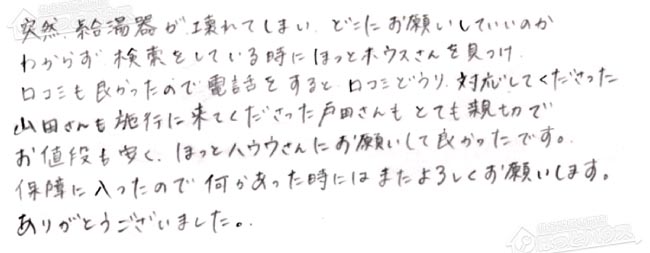 突然、給湯器が壊れてしまい、どこにお願いしていいのか
わからず 検索をしている時にほっとホウスさんを見つけ
口コミも良かったので電話をすると、口コミどうり、対応してくださった
山田さんも施行に来てくださった戸田さんもとても親切で
お値段も安く、ほっとハウウさんにお願いして良かったです。
保障に入ったので何かあった時にはまたよろしくお願いします。
ありがとうございました。